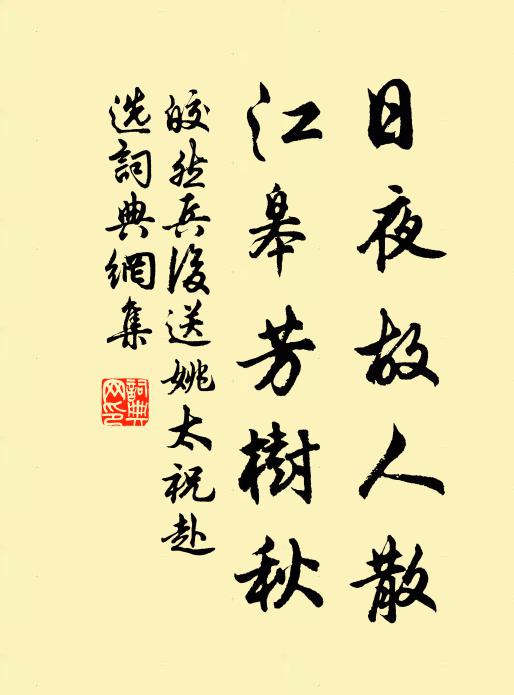 日夜故人散
江皋芳樹秋
皎然兵後送姚太祝赴
选詞典網集
詞典
网印